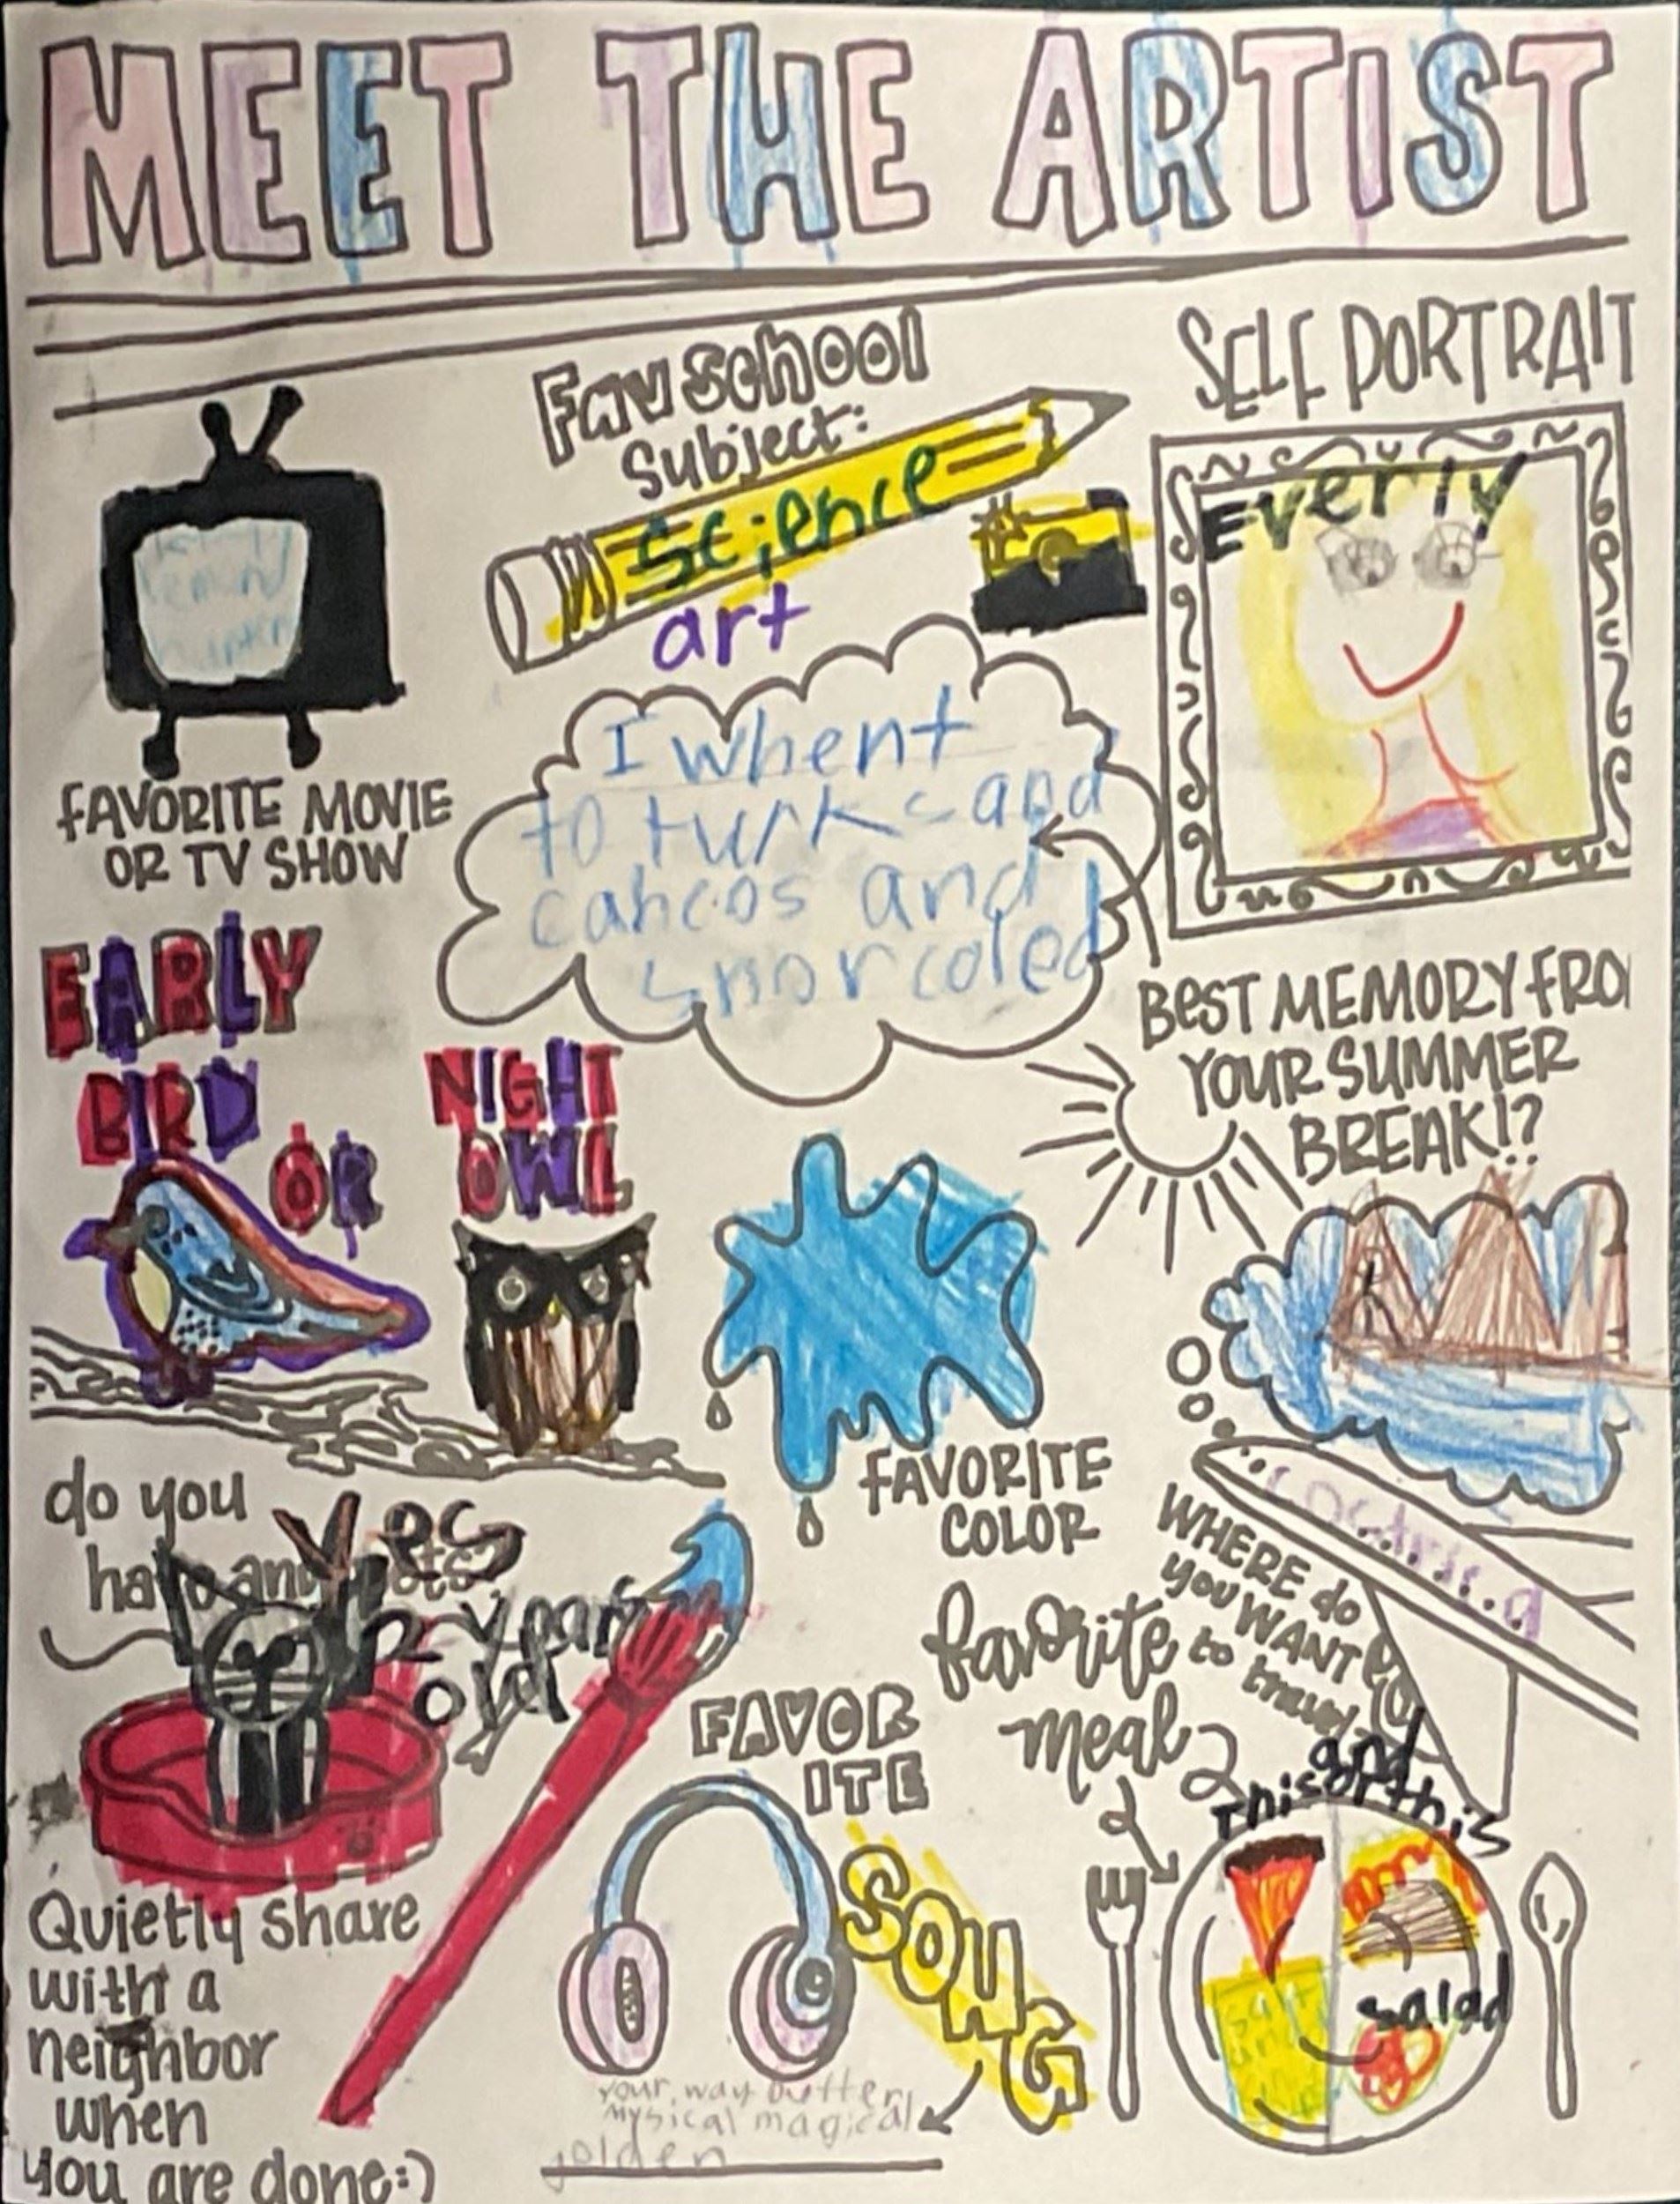 MEET THE ARTIST
Fav School
Subject:
Science
art
SELF PORTRAIT
Everly
FAVORITE MOVIE
OR TV SHOW
I whent
to turks and
cahcos and
snorcoled
BEST MEMORY FRO
YOUR SUMMER
BREAK!?
EARLY
BIRD
OR
NIGHT
OWL
FAVORITE
COLOR
do you
have any pets?
Yes
2 years
old
WHERE do
you WANT
to travel
favorite
meal
and
this or this
salad
FAVOR
ITE
SONG
your way butter
mysical magical
golden
Quietly share
with a
neighbor
when
you are done:)